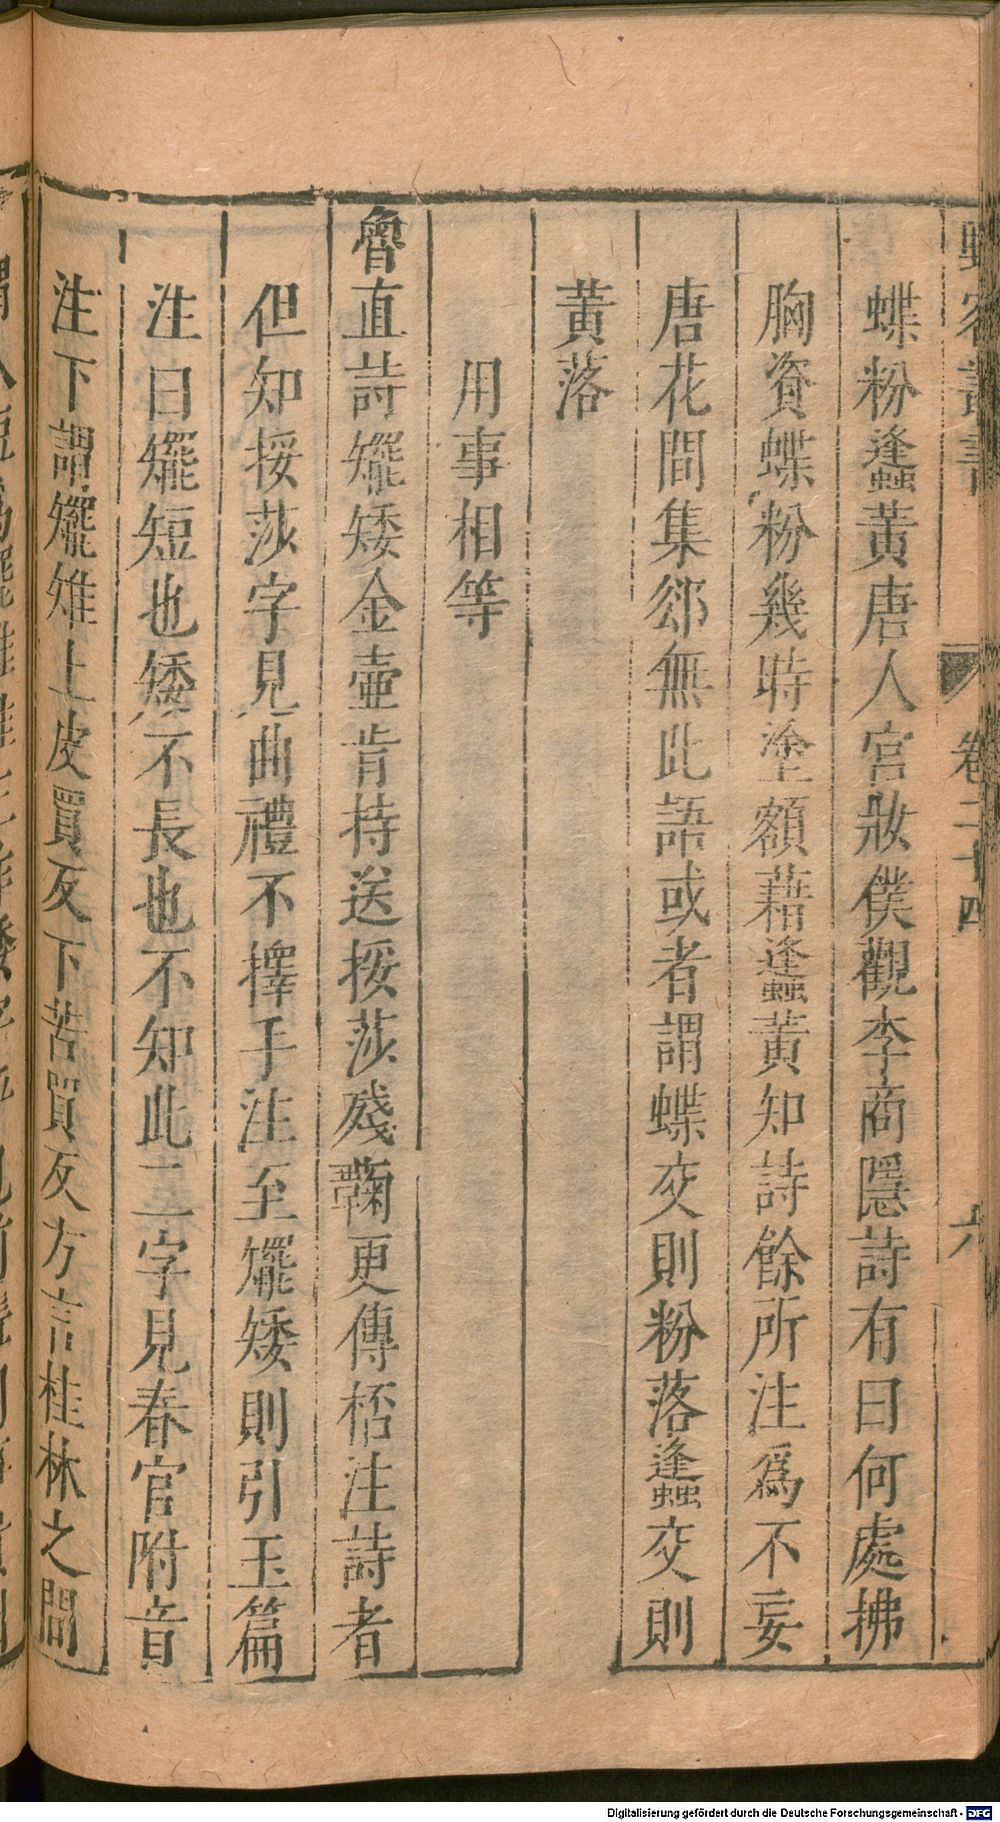 野客叢書 卷二十四 六
蝶粉蠭黃唐人宮妝僕觀李商隱詩有曰何處拂
胸資蝶粉幾時塗額藉蠭黃知詩餘所注爲不妄
唐花間集郤無此語或者謂蝶交則粉落蠭交則
黃落
用事相等
魯直詩䎱矮金壺肯持送挼莎殘菊更傳桮注詩者
但知挼莎字見曲禮不擇手注至䎱矮則引玉篇
注曰䎱短也矮不長也不知此二字見春官附音
注下謂䎱雉上皮買反下苦買反方言桂林之間
Digitalisierung gefördert durch die Deutsche Forschungsgemeinschaft - DFG